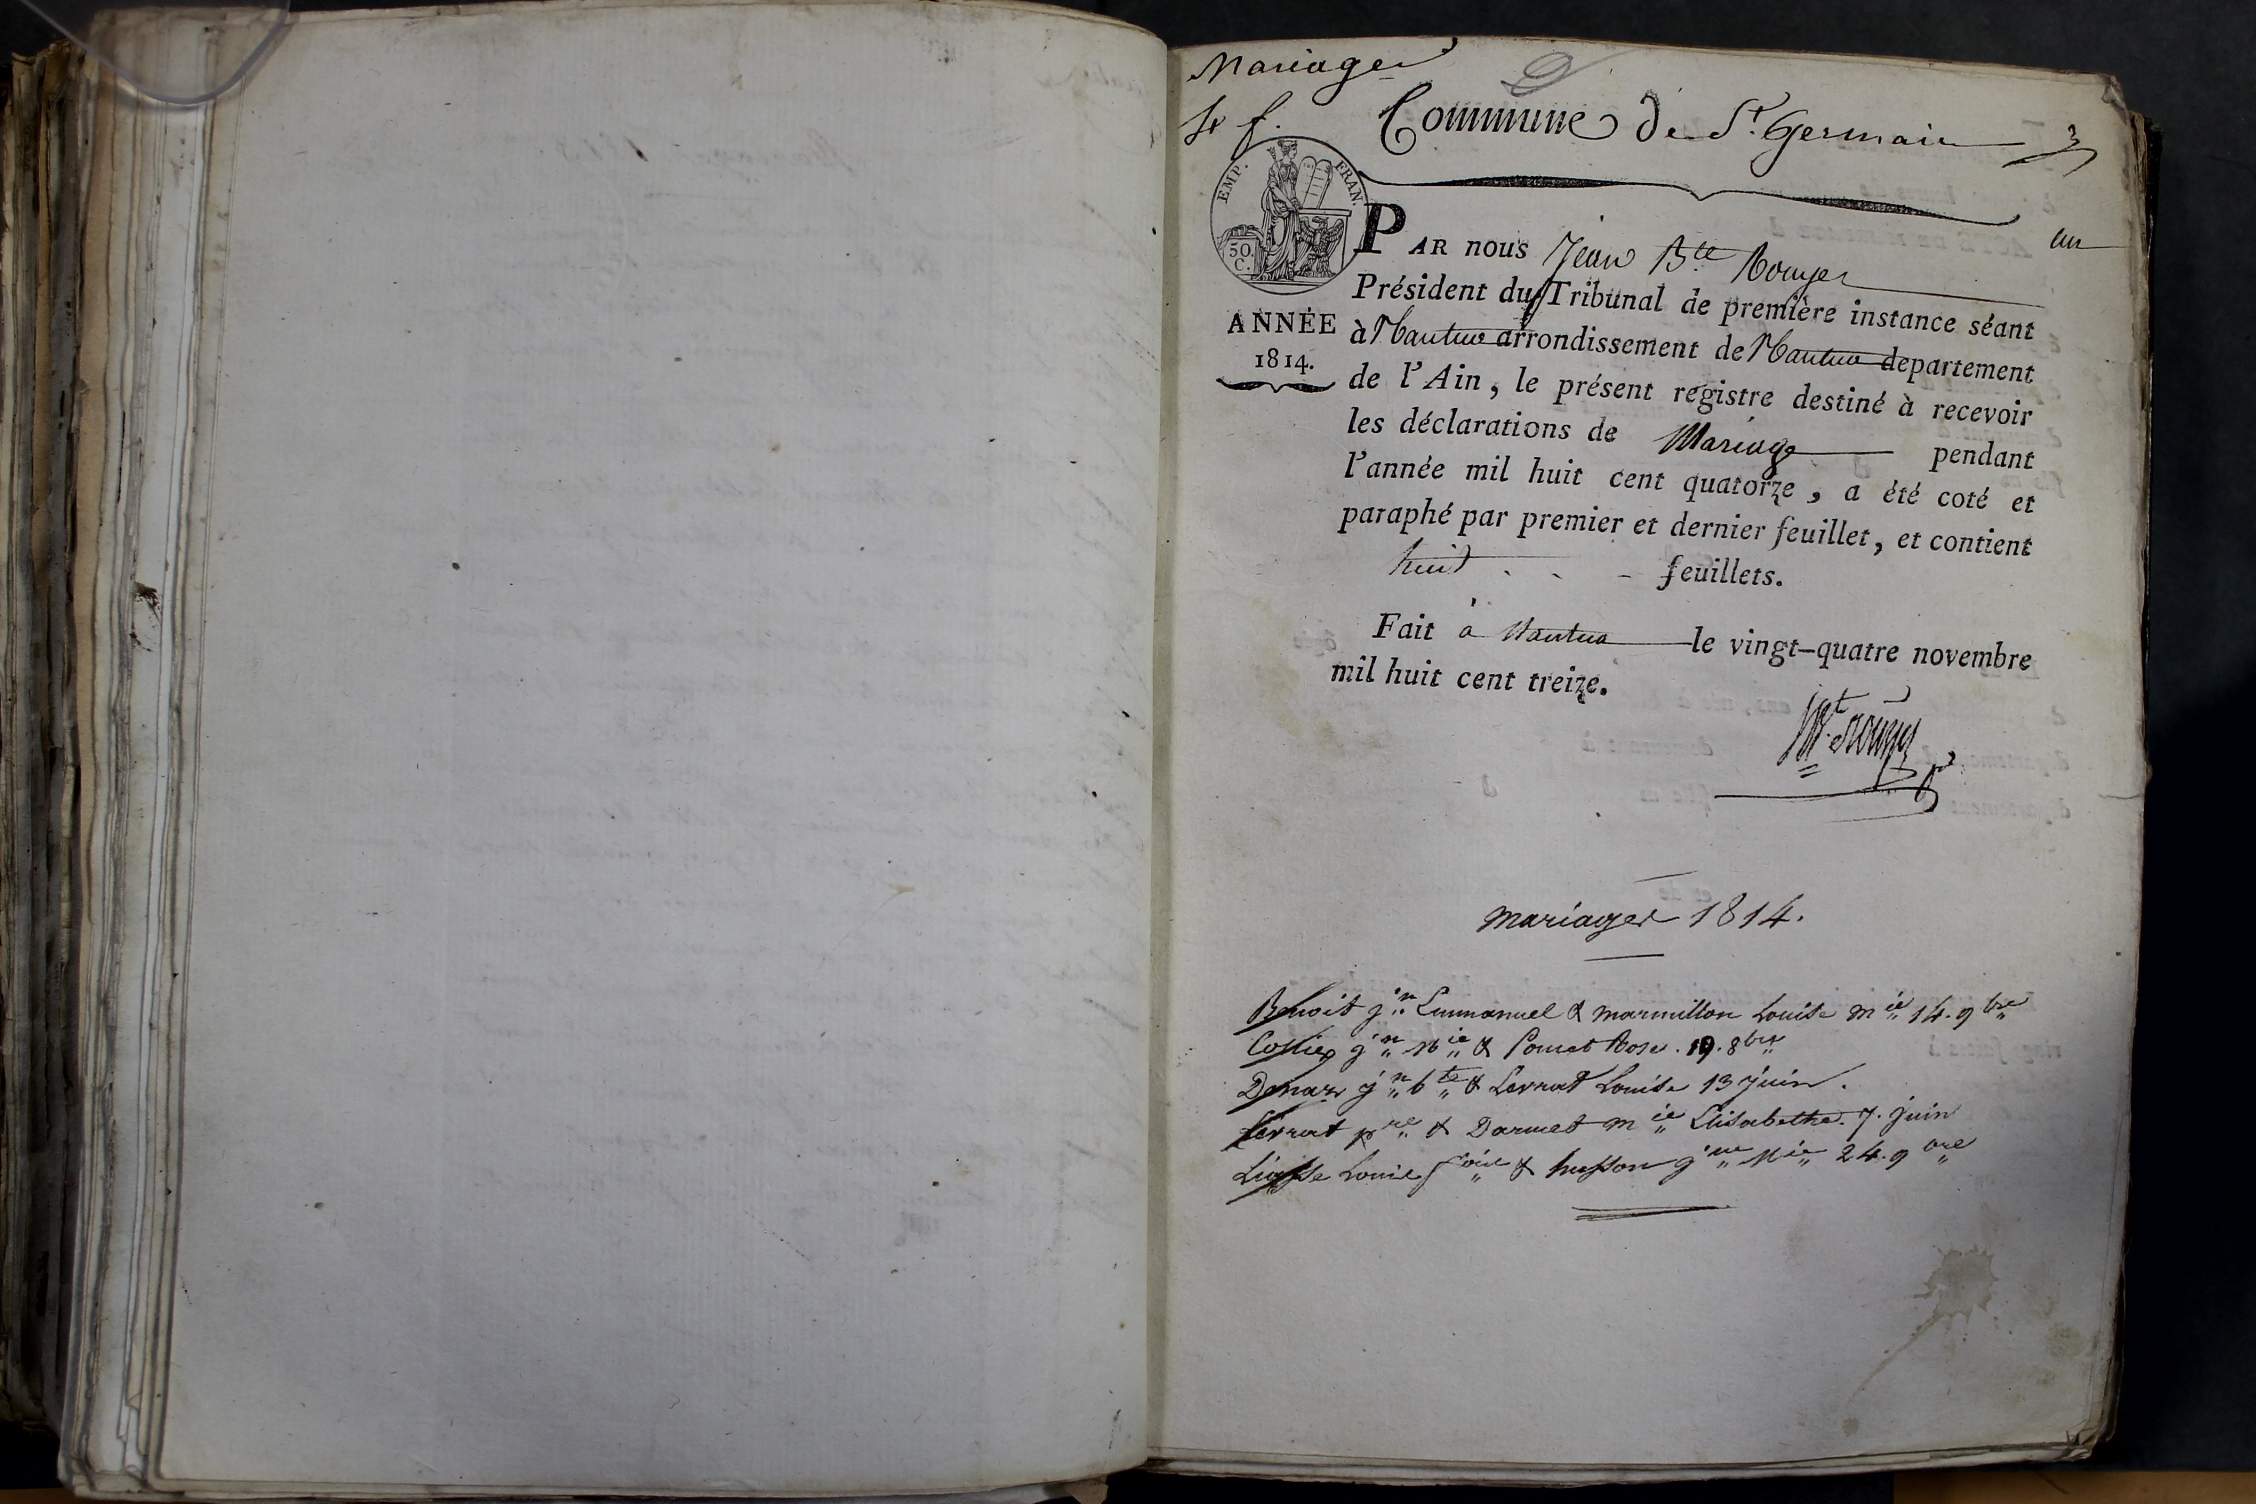 Mariages
Commune de St. Germain
EMP. FRAN.
50. C.
un
PAR nous Jean Bte Rouyer
Président du Tribunal de première instance séant
ANNÉE
1814.
à Nantua arrondissement de Nantua departement
de l'Ain, le présent registre destiné à recevoir
les déclarations de Mariage pendant
l'année mil huit cent quatorze, a été coté et
paraphé par premier et dernier feuillet, et contient
huit feuillets.
Fait à Nantua le vingt-quatre novembre
mil huit cent treize.
mariages 1814.
Benoit jn Emmanuel & marmillon Louise mie 14. 9bre
jn Mie & Poncet Rose. 19. 8bre
jn bte & Levrat Louise 13 juin.
Levrat pre & Darmet mie Elisabethe. 7. juin
Louis & husson jne Mie 24. 9bre